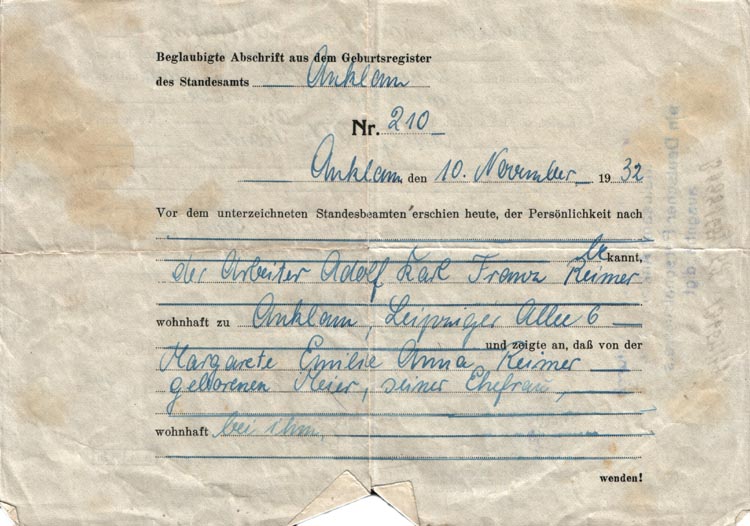 Beglaubigte Abschrift aus dem Geburtsregister
des Standesamts Anklam
Nr. 210
Anklam, den 10. November 1932
Vor dem unterzeichneten Standesbeamten erschien heute, der Persönlichkeit nach
bekannt,
der Arbeiter Adolf Karl Franz Reimer
wohnhaft zu Anklam, Leipziger Allee 6
und zeigte an, daß von der
Margarete Emilie Anna Reimer
geborenen Meier, seiner Ehefrau,
wohnhaft bei ihm,
wenden!